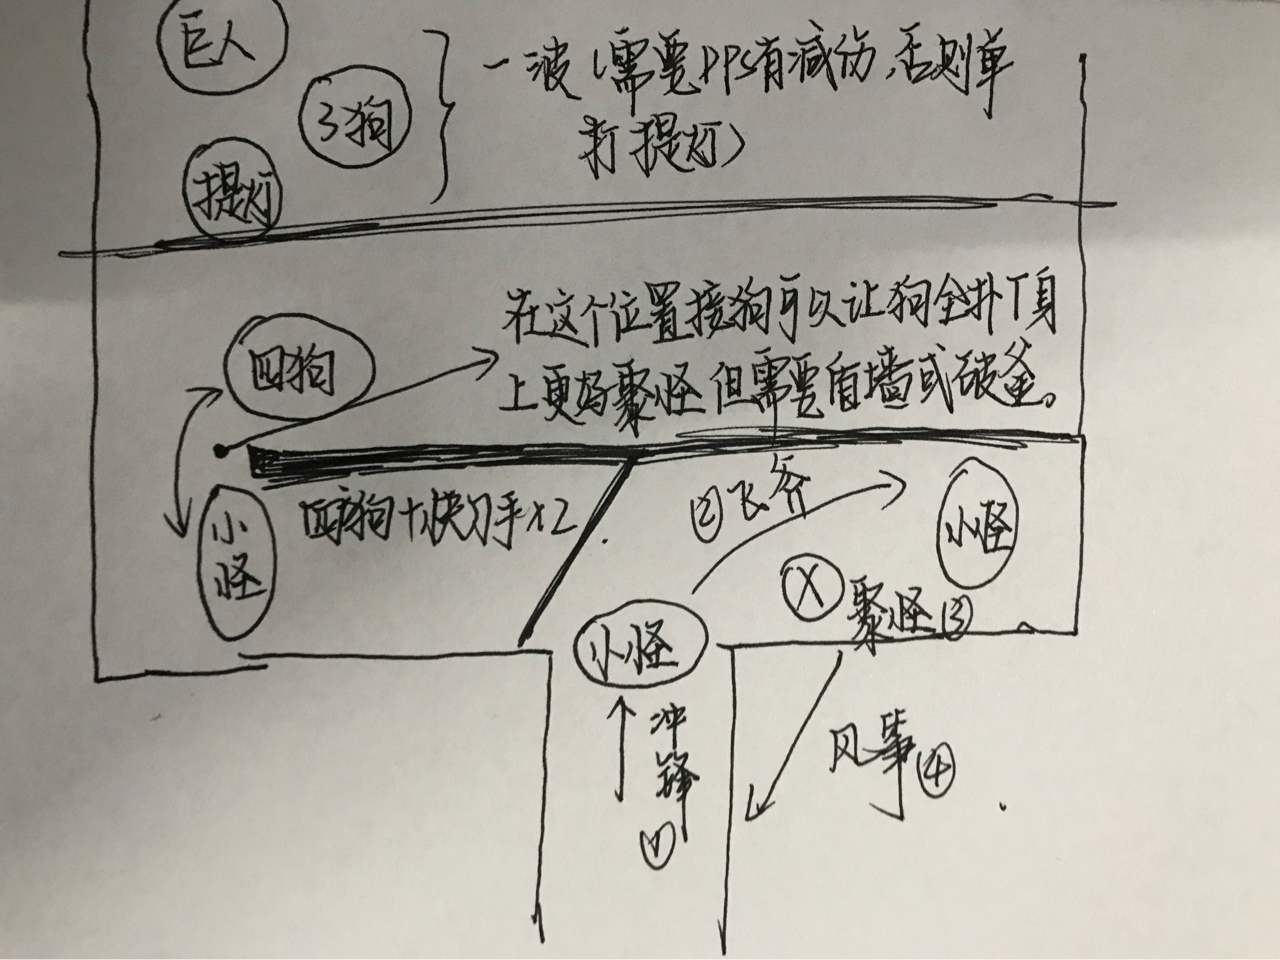 巨人
一波(需要DPS有减伤,否则单
3狗
打提灯)
提灯
在这个位置接狗可以让狗全扑T身
四狗
上更好聚怪但需要盾墙或破釜。
②飞斧
四狗+快刀手x2
小怪
小怪
X
聚怪③
小怪
冲锋①
风筝④